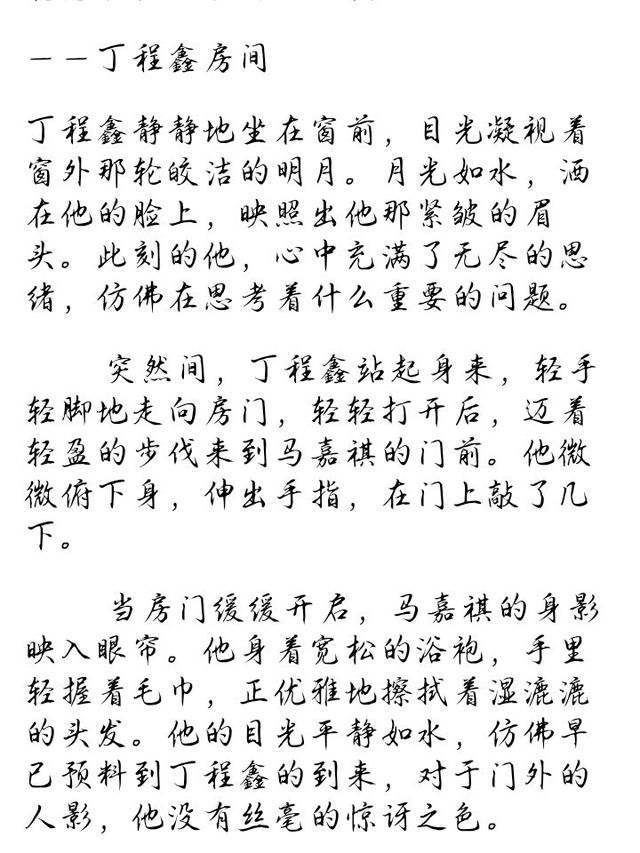 ——丁程鑫房间
丁程鑫静静地坐在窗前，目光凝视着
窗外那轮皎洁的明月。月光如水，洒
在他的脸上，映照出他那紧皱的眉
头。此刻的他，心中充满了无尽的思
绪，仿佛在思考着什么重要的问题。
突然间，丁程鑫站起身来，轻手
轻脚地走向房门，轻轻打开后，迈着
轻盈的步伐来到马嘉祺的门前。他微
微俯下身，伸出手指，在门上敲了几
下。
当房门缓缓开启，马嘉祺的身影
映入眼帘。他身着宽松的浴袍，手里
轻握着毛巾，正优雅地擦拭着湿漉漉
的头发。他的目光平静如水，仿佛早
已预料到丁程鑫的到来，对于门外的
人影，他没有丝毫的惊讶之色。